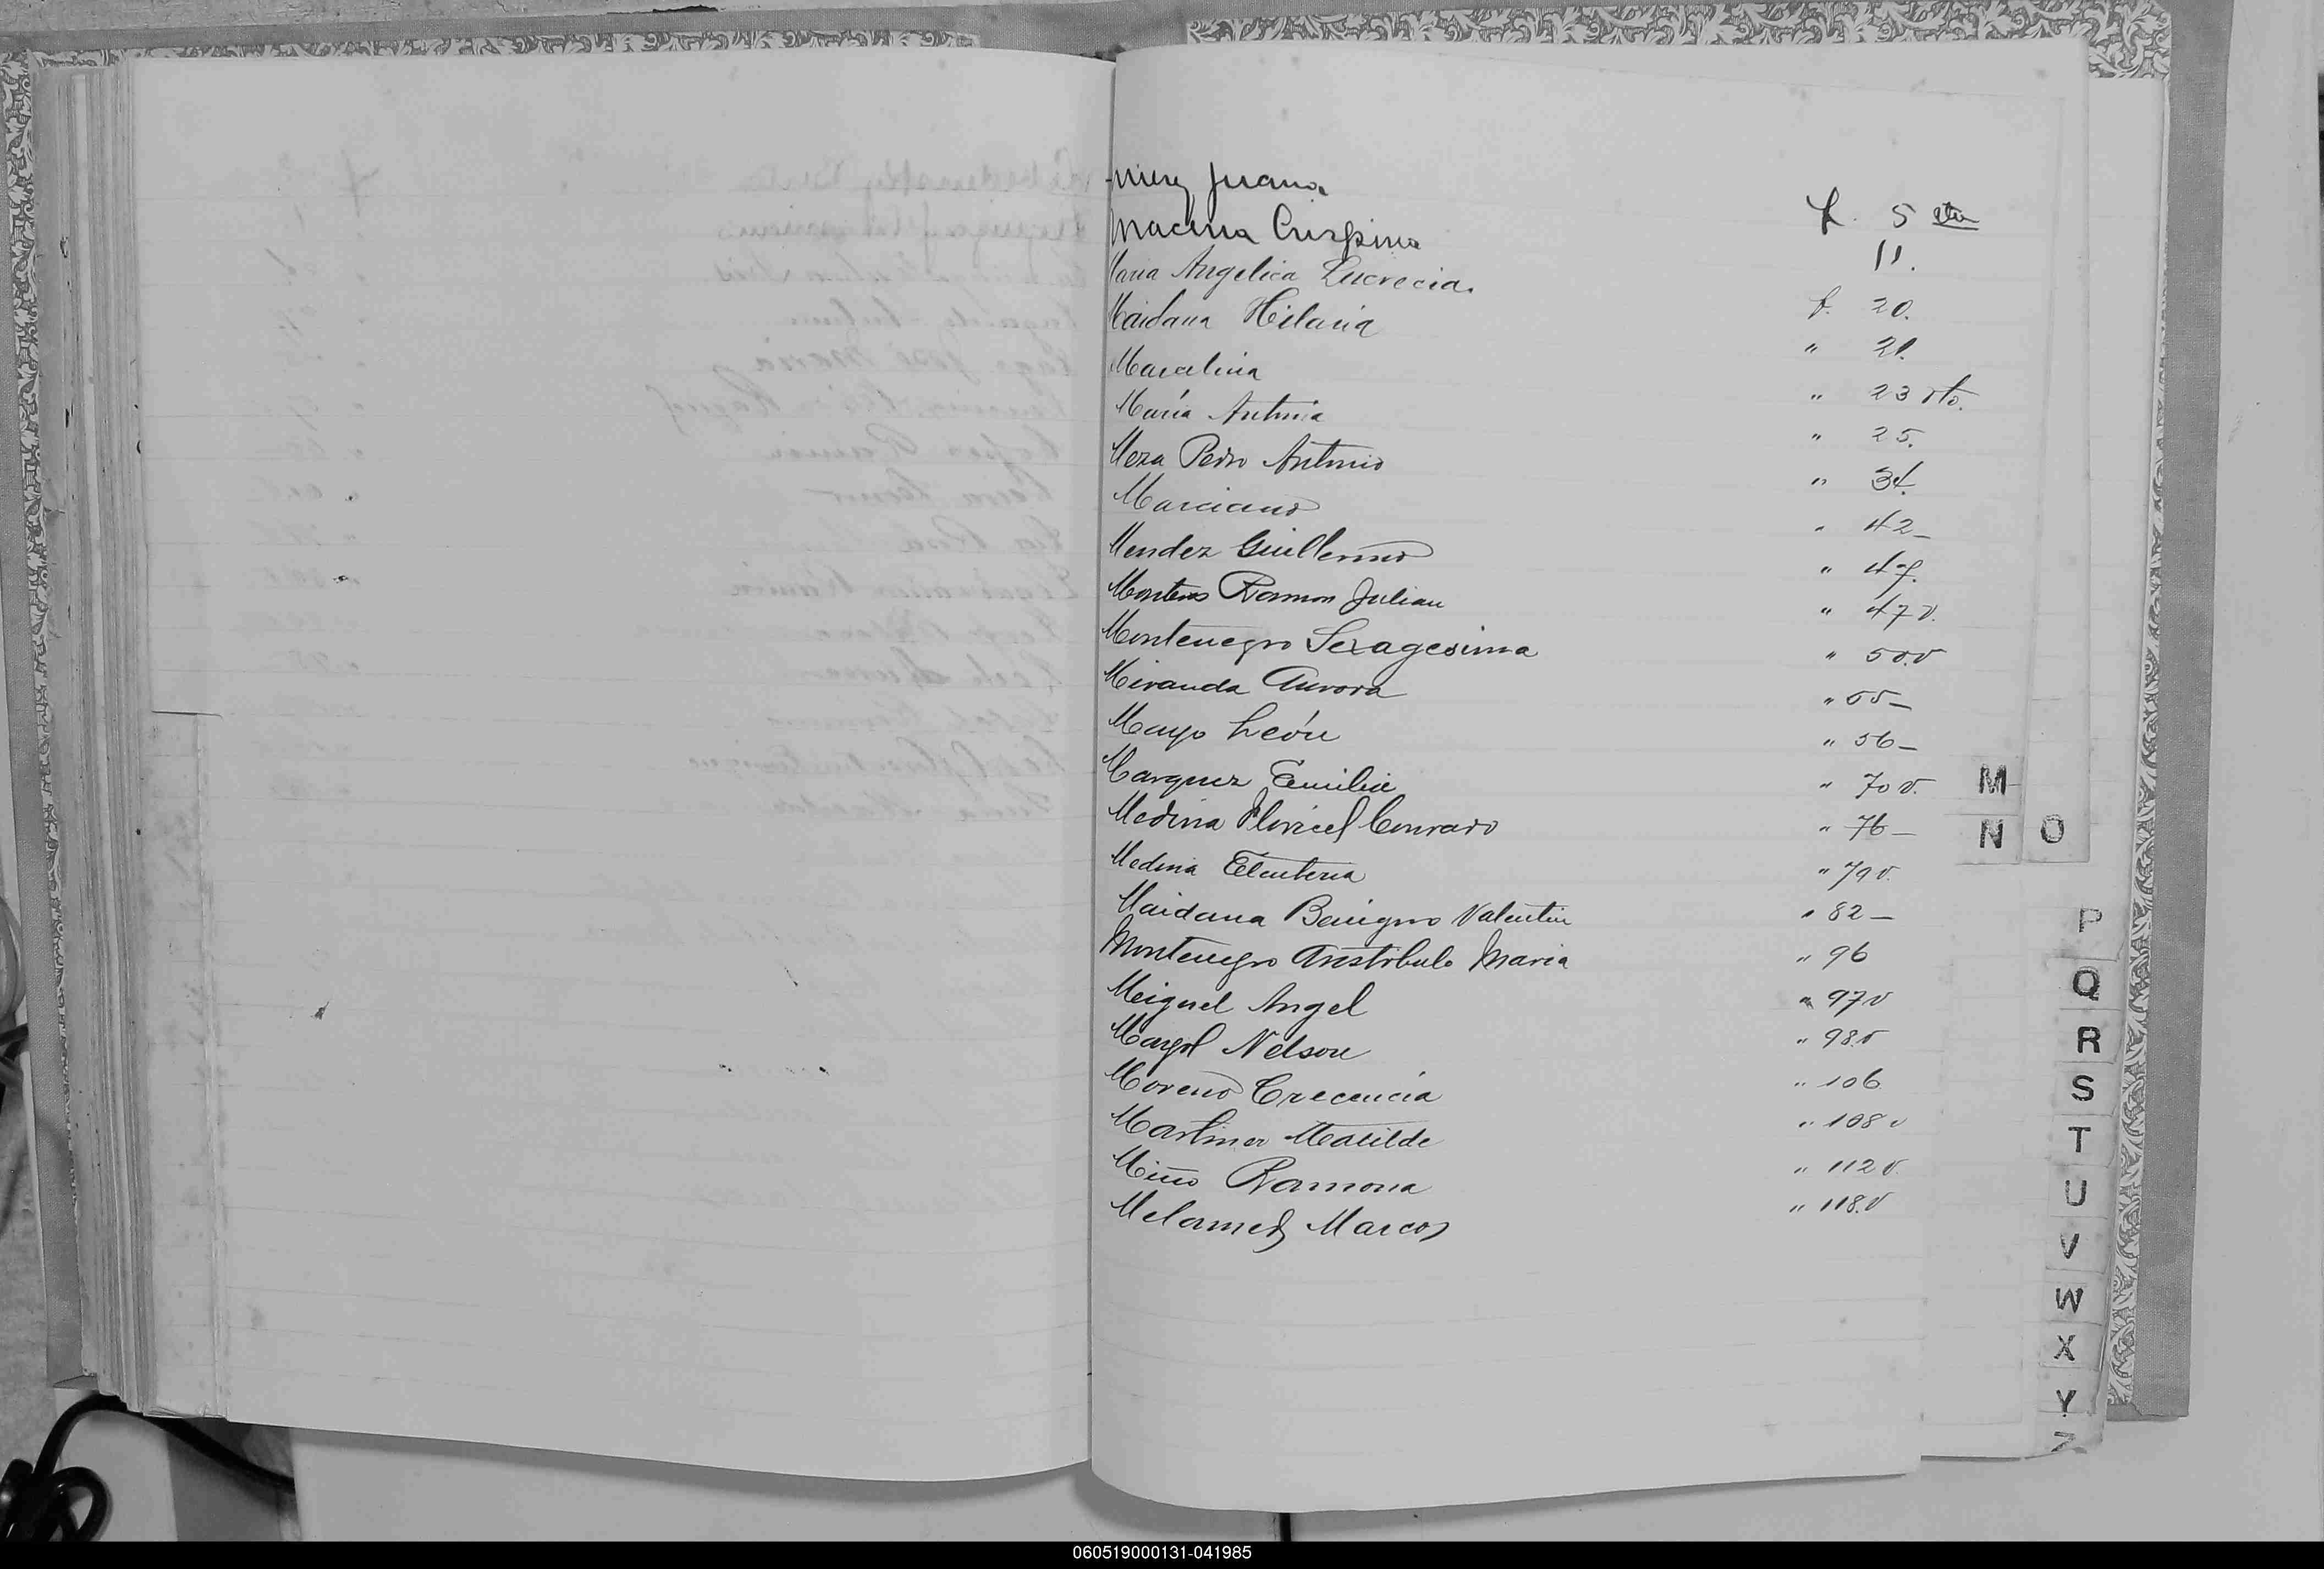 Juana f. 5 vta
Macena Crispina 11.
Maria Angelica Lucrecia. f. 20.
Maidana Hilaria " 21.
Marcelina " 23 vto.
María Antonia " 25.
Meza Pedro Antonio " 34.
Marciano " 42_
Mendez Guillermo " 47.
Monteros Ramon Julian " 47 v.
Montenegro Sexagesima " 50.v
Miranda Aurora " 55_
Mayo León " 56_
Marquez Emilia " 70 v.
Medina Floricel Conrado " 76_
Medina Eleuteria " 79 v.
Maidana Benigno Valentin " 82_
Montenegro Aristobulo Maria " 96
Meiguel Angel " 97 v
Nelson " 98.v
Moreno Crecencia " 106
Martinez Matilde " 108 v
Miño Ramona " 112 v.
Melamed Marcos " 118.v
M
N
O
P
Q
R
S
T
U
V
W
X
Y
Z
060519000131-041985